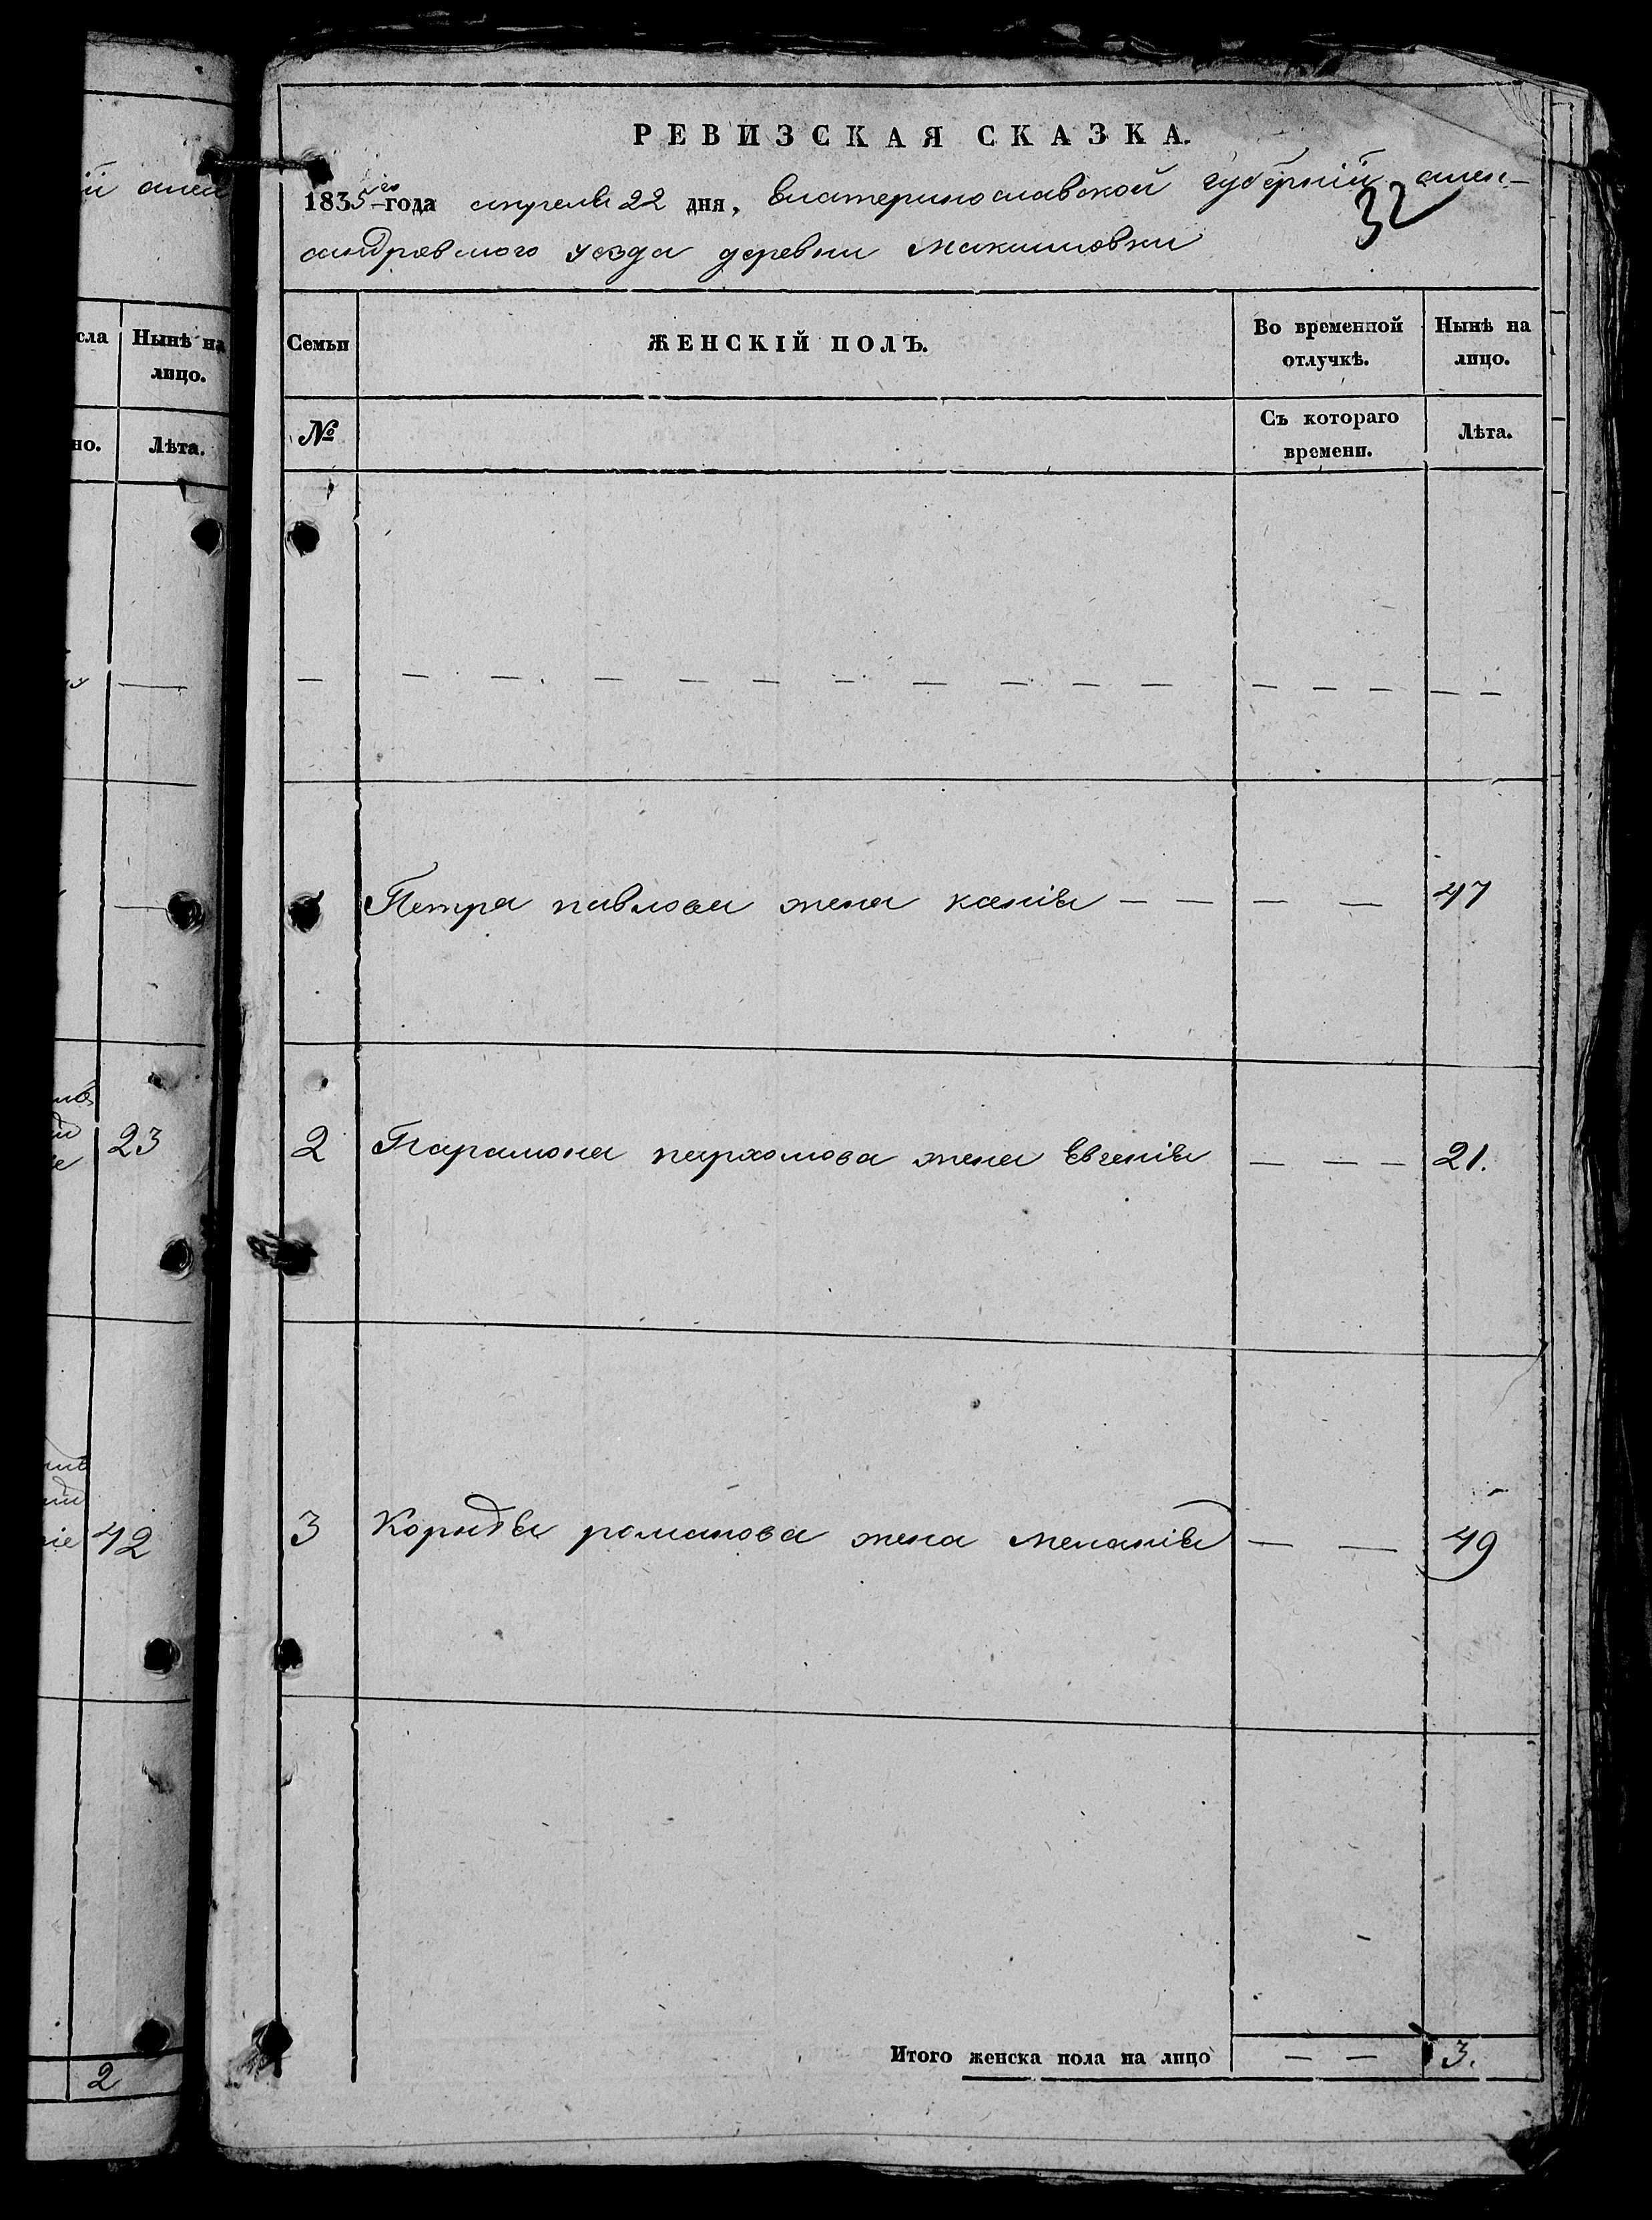 РЕВИЗСКАЯ СКАЗКА.
1835го года апреля 22 дня, Екатеринославской губернїи алек-
сандровского уезда деревни Максимовки
32
Семьи
ЖЕНСКІЙ ПОЛЪ.
Во временной отлучкѣ.
Нынѣ на лицо.
№
Съ котораго времени.
Лѣта.
— — — — — — — — — — — — — — — —
Петра павлова жена — — — — 47
2 Парамона пархомова жена Евгенія — — — 21.
3 романова жена меланія — — 49
Итого женска пола на лицо — — 3.
їи алек
сла
Нынѣ на лицо.
но.
Лѣта.
23
42
2